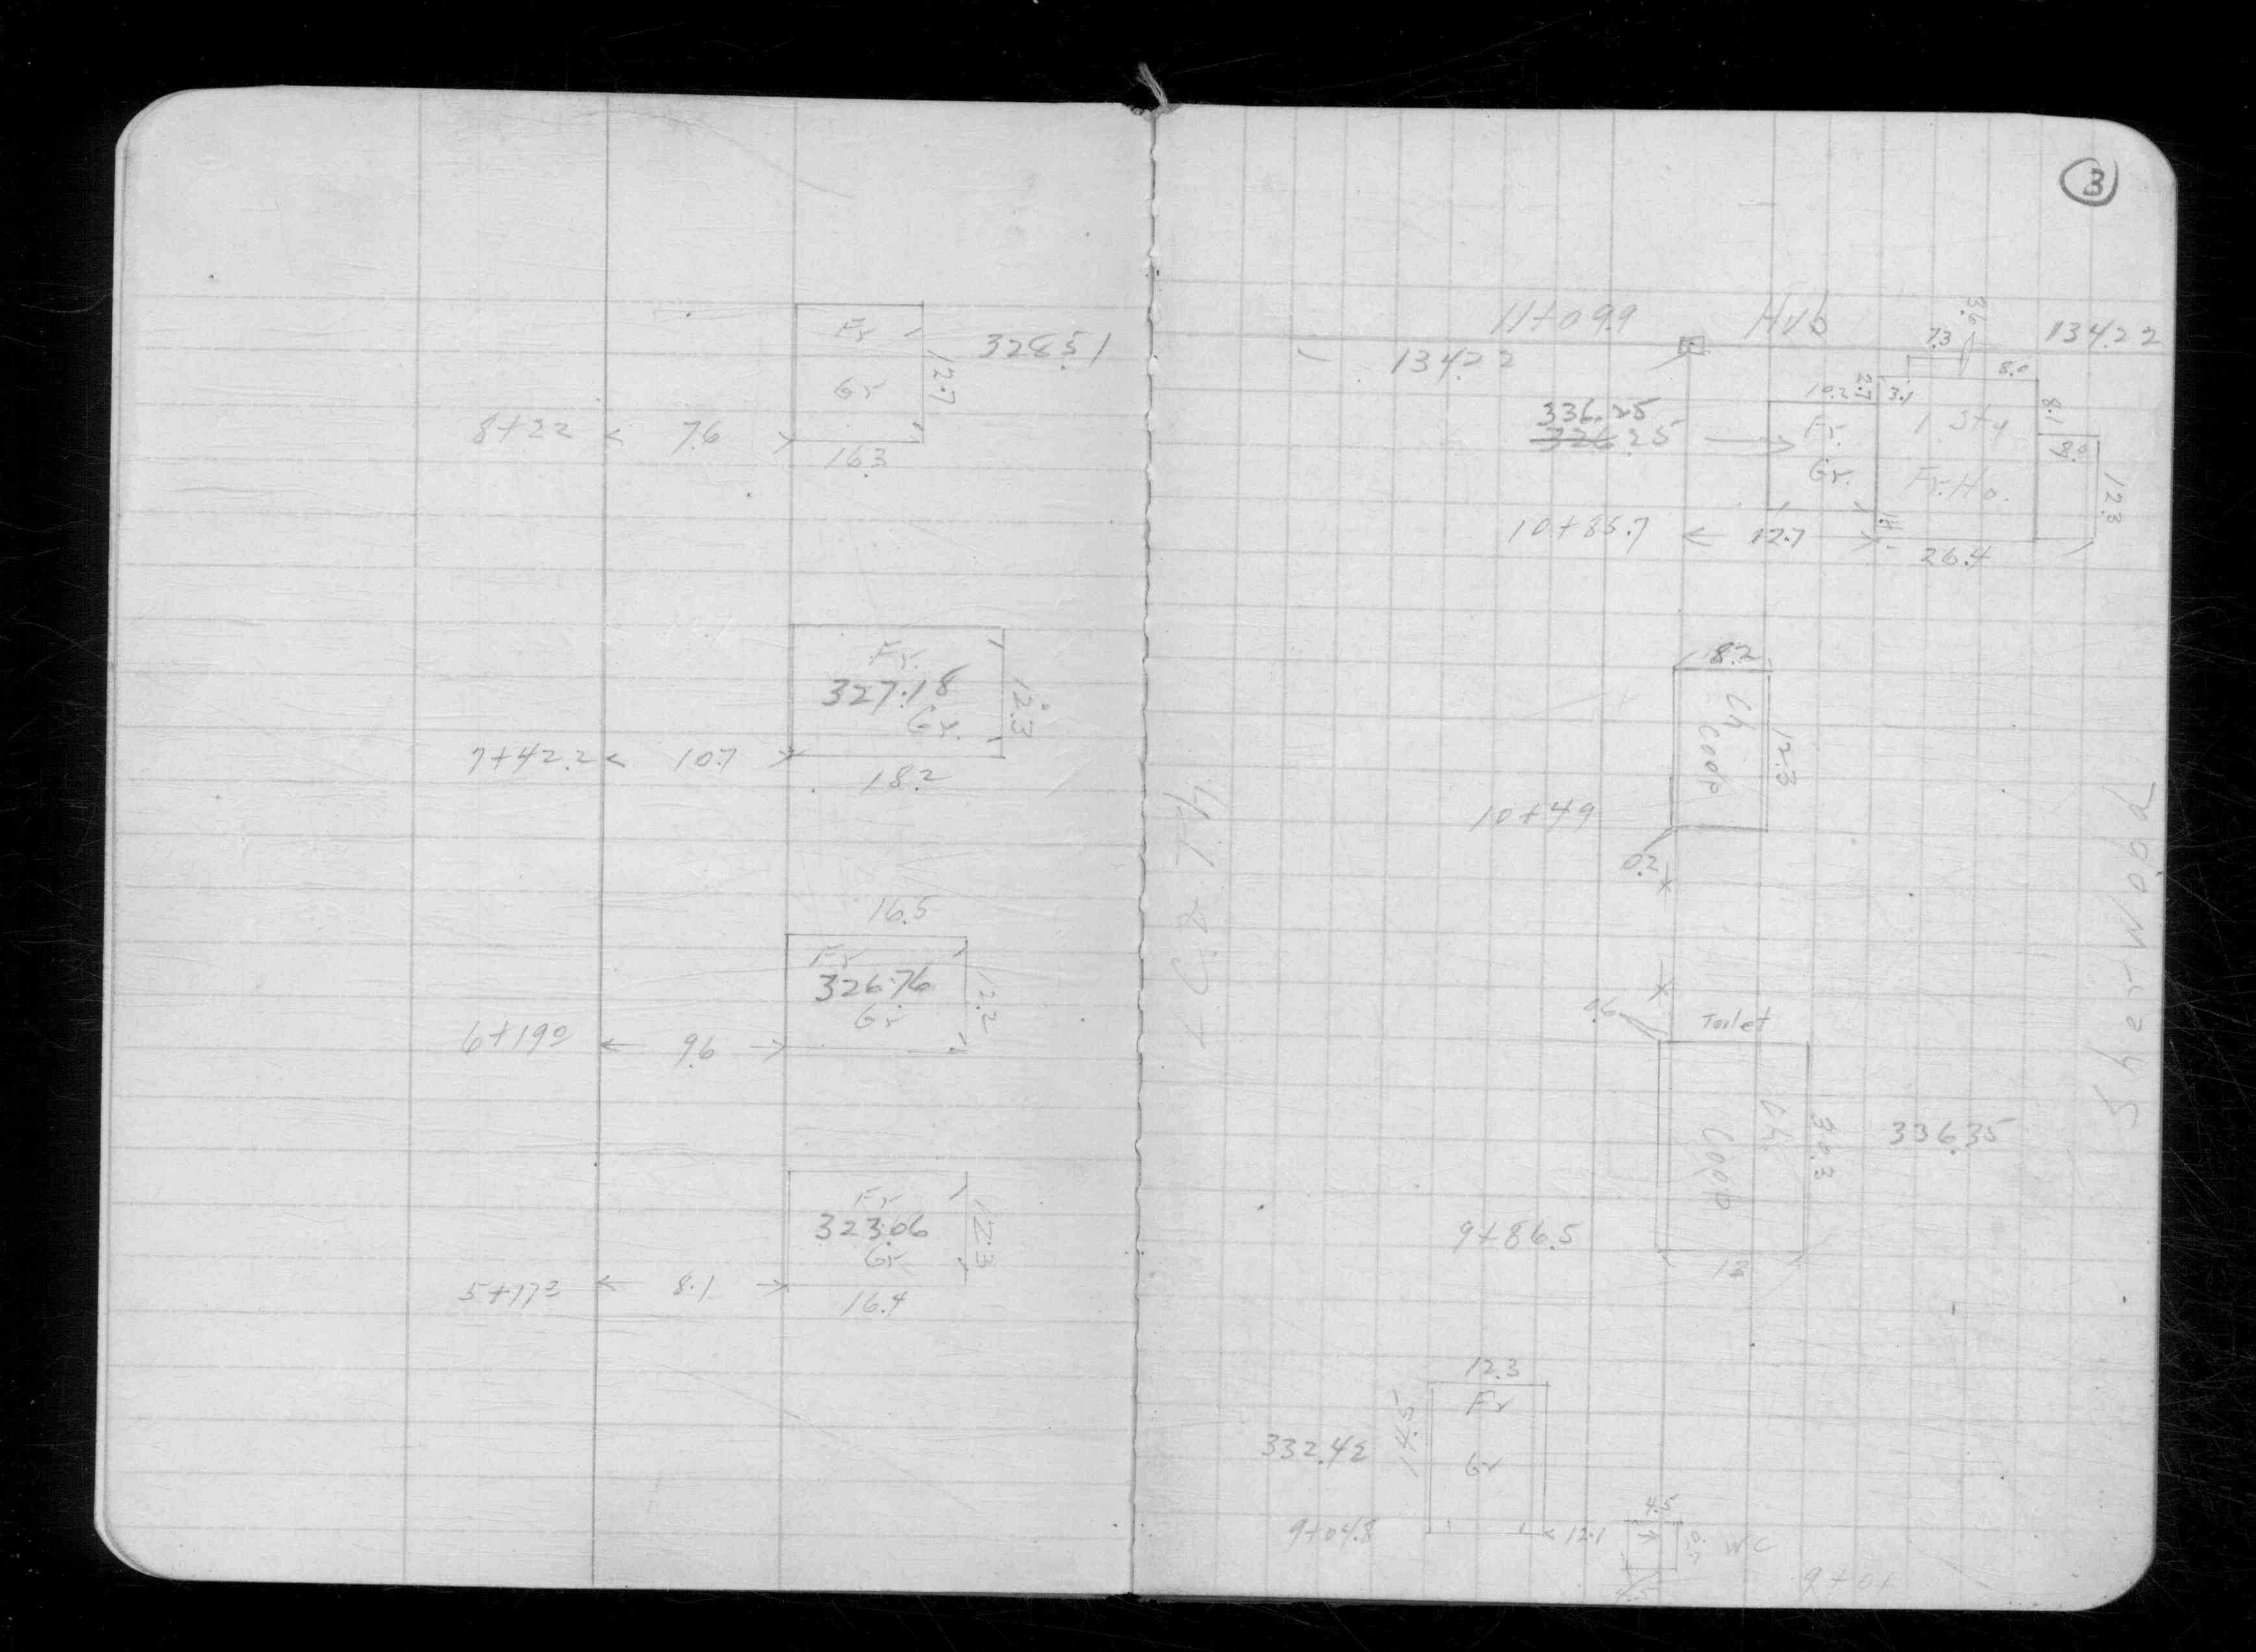 Fr
Gr
12.7
328.51
8+22
7.6
16.3
Fr.
327.18
Gr.
12.3
7+42.2
10.7
18.2
16.5
Fr
326.76
Gr
12.2
6+19º
9.6
Fr
323.06
Gr
12.3
8.1
16.4
3
11+09.9
Hub
3.6
7.3
134.22
134.22
8.0
10.2
2.7
3.1
8.1
336.25
326.25
Fr.
Gr.
1 Sty
Fr. Ho.
8.0
12.3
10+85.7
12.7
1.4
26.4
18.2
Ch
Coop
12.3
10+49
0.2
0.6
Toilet
Ch.
Coop
30.3
336.35
9+86.5
12.3
Fr
Gr
14.5
332.42
9+04.8
12.1
4.5
WC
9+01